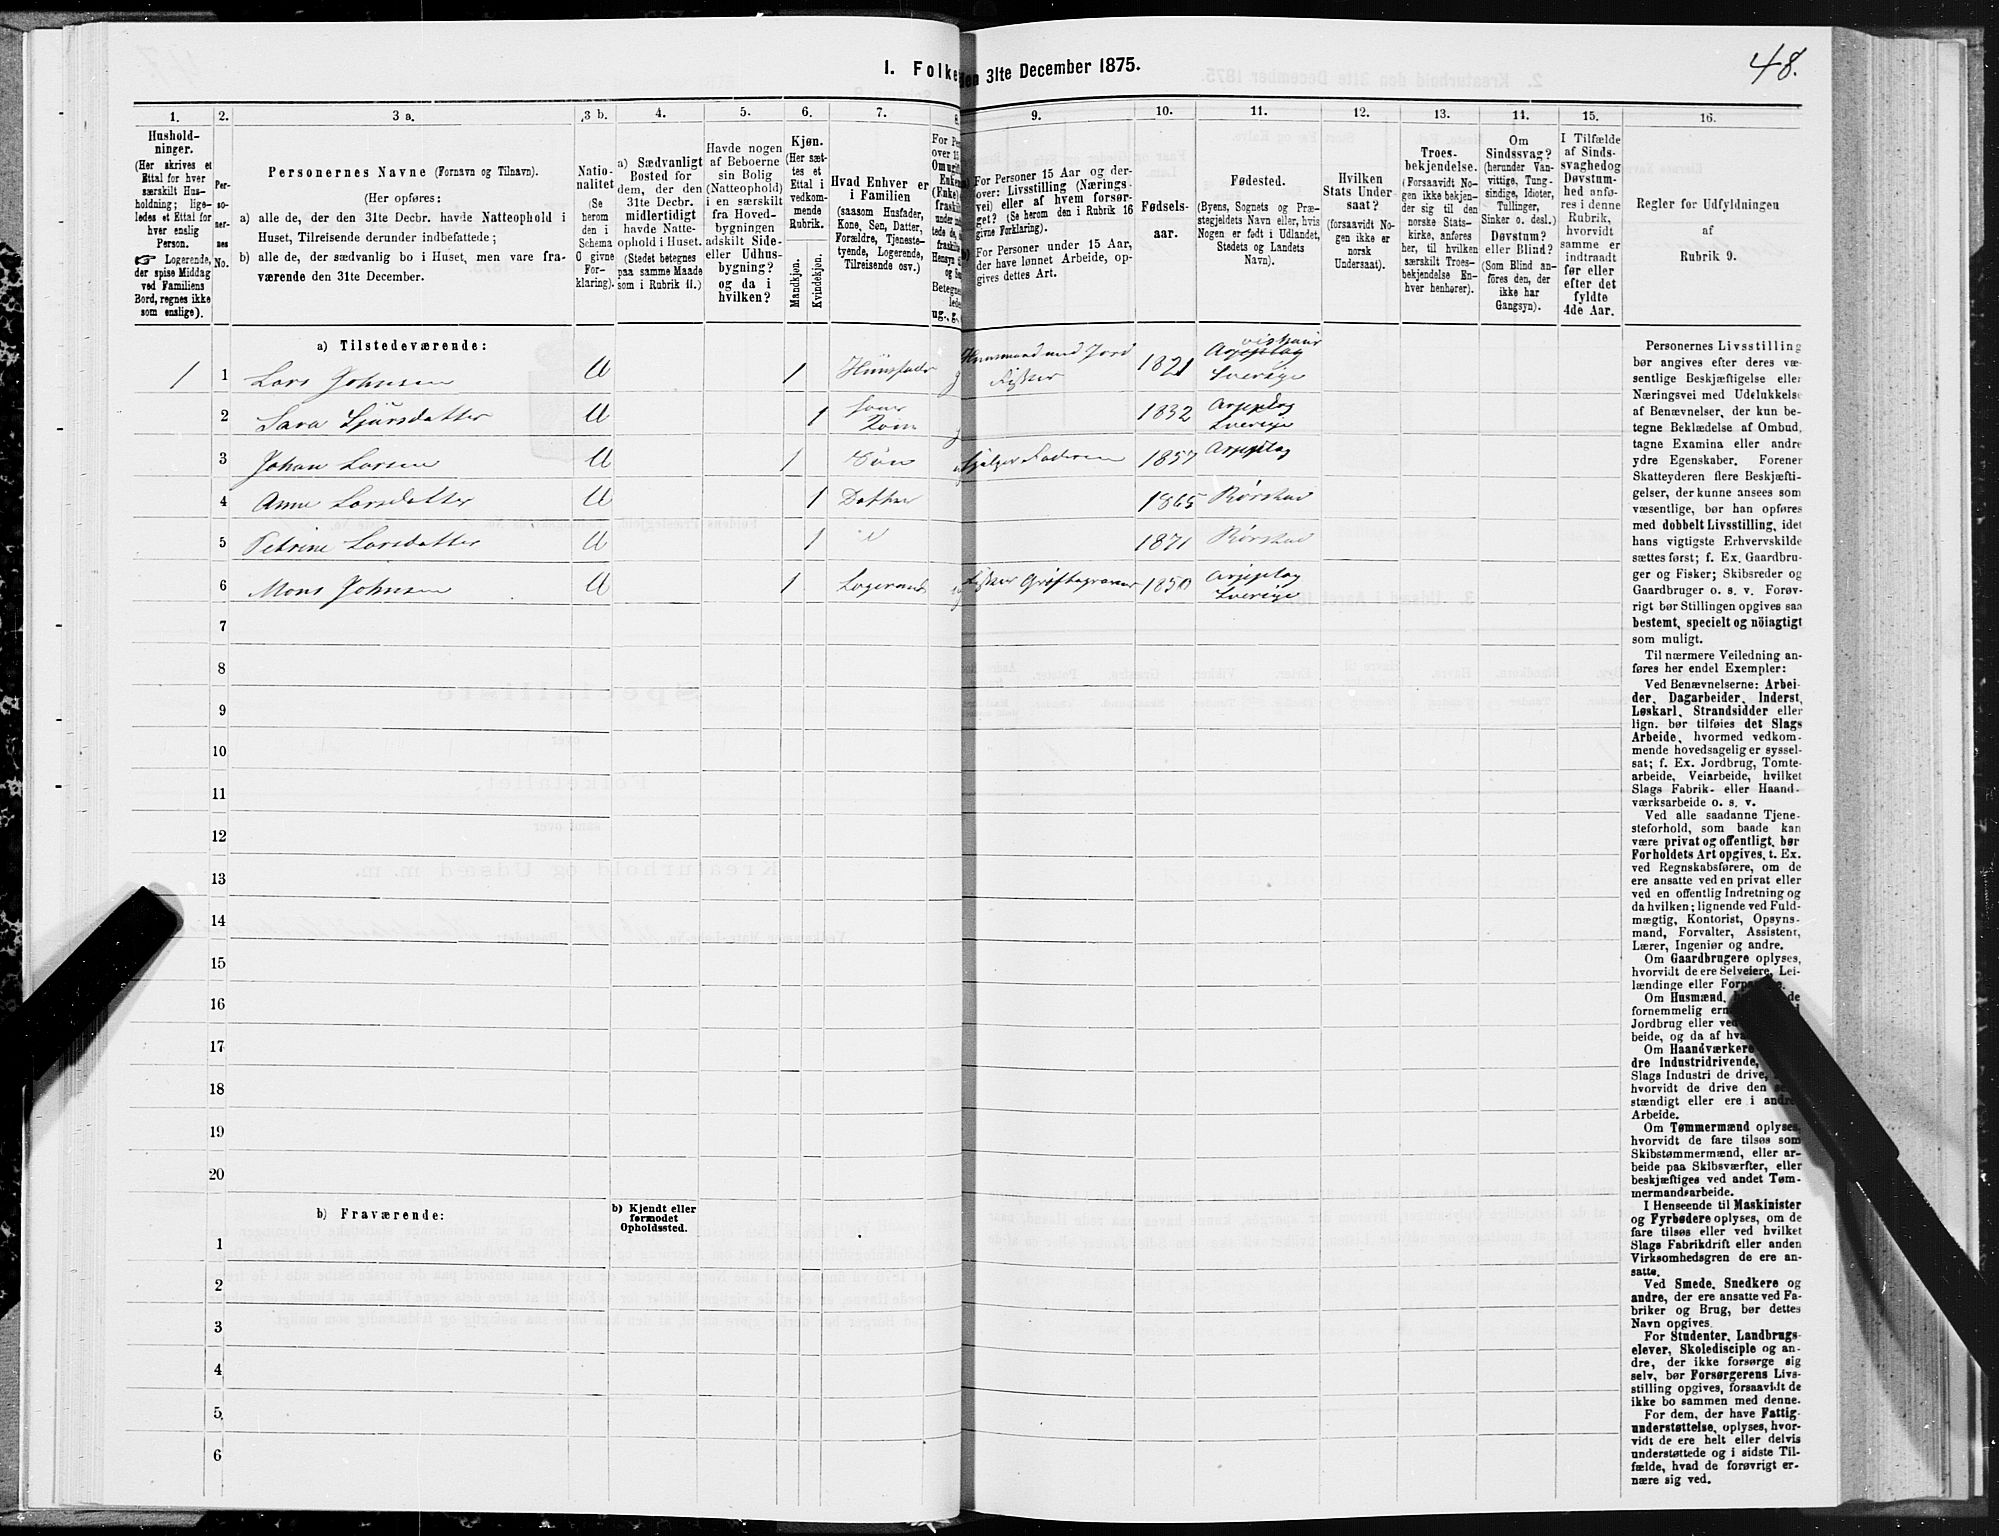 48.
I. Folke
den 31te December 1875.
1.
Hushold-
ninger.
(Her skrives et
Ettal for hver
særskilt Hus-
holdning; lige-
ledes et Ettal for
hver enslig
Person.
☞ Logerende,
der spise Middag
ved Familiens
Bord, regnes ikke
som enslige).
2.
Per-
so-
ner-
nes
No.
3 a.
Personernes Navne (Fornavn og Tilnavn).
(Her opføres:
a) alle de, der den 31te Decbr. havde Natteophold i
Huset, Tilreisende derunder indbefattede;
b) alle de, der sædvanlig bo i Huset, men vare fra-
værende den 31te December.
3 b.
Natio-
nalitet
(Se
herom
den i
Schema
C givne
For-
klaring).
4.
a) Sædvanligt
Bosted for
dem, der den
31te Decbr.
midlertidigt
havde Natte-
ophold i Huset.
(Stedet betegnes
paa samme Maade
som i Rubrik 11.)
5.
Havde nogen
af Beboerne
sin Bolig
(Natteophold)
i en særskilt
fra Hoved-
bygningen
adskilt Side-
eller Udhus-
bygning?
og da i
hvilken?
6.
Kjøn.
(Her sæt-
tes et
Ettal i
vedkom-
mende
Rubrik.
Mandkjøn.
Kvindekjøn.
7.
Hvad Enhver er
i Familien
(saasom Husfader,
Kone, Søn, Datter,
Forældre, Tjeneste-
tyende, Logerende,
Tilreisende osv.)
8.
For Pe
over 15
Omugift
Enkem
(Enke)
fraskilt
ug., g.,
9.
For Personer 15 Aar og der-
over: Livsstilling (Nærings-
vei) eller af hvem forsør-
get? (Se herom den i Rubrik 16
givne Forklaring).
For Personer under 15 Aar,
der have lønnet Arbeide, op-
gives dettes Art.
10.
Fødsels-
aar.
11.
Fødested.
(Byens, Sognets og Præ-
stegjeldets Navn eller, hvis
Nogen er født i Udlandet,
Stedets og Landets
Navn).
12.
Hvilken
Stats Under-
saat?
(forsaavidt No-
gen ikke er
norsk
Undersaat).
13.
Troes-
bekjendelse.
(Forsaavidt No-
gen ikke bekjen-
der sig til den
norske Stats-
kirke, anføres
her, til hvilken
særskilt Troes-
bekjendelse En-
hver henhører).
14.
Om
Sindssvag?
(herunder Van-
vittige, Tung-
sindige, Idioter,
Tullinger,
Sinker o. desl.)
Døvstum?
eller Blind?
(Som Blind an-
føres den, der
ikke har
Gangsyn).
15.
I Tilfælde
af Sinds-
svaghed og
Døvstum-
hed anfø-
res i denne
Rubrik,
hvorvidt
samme er
indtraadt
før eller
efter det
fyldte
4de Aar.
16.
Regler for Udfyldningen
af
Rubrik 9.
a) Tilstedeværende:
1 1 Lars Johnsen U 1 Huusfader g Huusmand med Jord Fisker 1821 Arjeplog Sverige
2 Sara Sjursdatter U 1 Kone g 1832 Arjeplog Sverige
3 Johan Larsen U 1 Søn Hjelper Faderen 1857 Arjeplog
4 Anne Larsdatter U 1 Datter 1865 Rørstad
5 Petrine Larsdatter U 1 1871 Rørstad
6 Mons Johnsen U 1 Logerende ug Fisker Grøftegraver 1850 Arjeplog Sverige
7
8
9
10
11
12
13
14
15
16
17
18
19
20
b) Fraværende:
b) Kjendt eller
formodet
Opholdssted.
1
2
3
4
5
6
Personernes Livsstilling
bør angives efter deres væ-
sentlige Beskjæftigelse eller
Næringsvei med Udelukkelse
af Benævnelser, der kun be-
tegne Beklædelse af Ombud,
tagne Examina eller andre
ydre Egenskaber. Forener
Skatteyderen flere Beskjæfti-
gelser, der kunne ansees som
væsentlige, bør han opføres
med dobbelt Livsstilling, idet
hans vigtigste Erhvervskilde
sættes først; f. Ex. Gaardbru-
ger og Fisker; Skibsreder og
Gaardbruger o. s. v. Forøv-
rigt bør Stillingen opgives saa
bestemt, specielt og nöiagtigt
som muligt.
Til nærmere Veiledning an-
føres her endel Exempler:
Ved Benævnelserne: Arbei-
der, Dagarbeider, Inderst,
Løskarl, Strandsidder eller
lign. bør tilføies det Slags
Arbeide, hvormed vedkom-
mende hovedsagelig er syssel-
sat; f. Ex. Jordbrug, Tomte-
arbeide, Veiarbeide, hvilket
Slags Fabrik- eller Haand-
værksarbeide o. s. v.
Ved alle saadanne Tjene-
steforhold, som baade kan
være privat og offentligt, bør
Forholdets Art opgives, t. Ex.
ved Regnskabsførere, om de
ere ansatte ved en privat eller
ved en offentlig Indretning og
da hvilken; lignende ved Fuld-
mægtig, Kontorist, Opsyns-
mand, Forvalter, Assistent,
Lærer, Ingeniør og andre.
Om Gaardbrugere oplyses,
hvorvidt de ere Selveiere, Lei-
lændinge eller Forpa
Om Husmænd, de
fornemmelig er
Jordbrug eller ved
beide, og da af hva
Om Haandværkere
dre Industridrivende,
Slags Industri de drive,
hvorvidt de drive den se
stændigt eller ere i andres
Arbeide.
Om Tømmermænd oplyses,
hvorvidt de fare tilsøs som
Skibstømmermænd, eller ar-
beide paa Skibsværfter, eller
beskjæftiges ved andet Tøm-
mermandsarbeide.
I Henseende til Maskinister
og Fyrbødere oplyses, om de
fare tilsøs eller ved hvilket
Slags Fabrikdrift eller anden
Virksomhedsgren de ere an-
satte.
Ved Smede, Snedkere og
andre, der ere ansatte ved Fa-
briker og Brug, bør dettes
Navn opgives.
For Studenter, Landbrugs-
elever, Skoledisciple og an-
dre, der ikke forsørge sig
selv, bør Forsørgerens Livs-
stilling opgives, forsaavidt de
ikke bo sammen med denne.
For dem, der have Fattig-
understøttelse, oplyses, hvor-
vidt de ere helt eller delvis
understøttede og i sidste Til-
fælde, hvad de forøvrigt er-
nære sig ved.